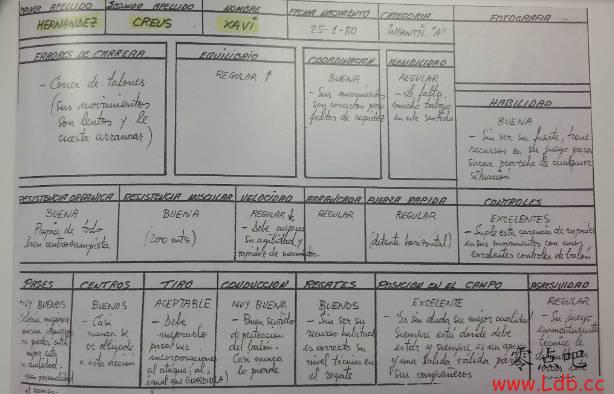 PRIMER APELLIDO
HERNANDEZ
SEGUNDO APELLIDO
CREUS
NOMBRE
XAVI
FECHA NACIMIENTO
25-1-80
CATEGORIA
INFANTIL "A"
FOTOGRAFIA
ERRORES DE CARRERA
- Correr de talones
(sus movimientos
son lentos y le
cuesta arrancar)
EQUILIBRIO
REGULAR ↑
COORDINACION
BUENA
- Sus movimientos
son correctos pero
faltos de rapidez
FLEXIBILIDAD
REGULAR
- Le falta
mucho trabajo
en este sentido
HABILIDAD
BUENA
- Sin ser su fuerte, tiene
recursos en su juego para
sacar provecho de cualquier
situación
RESISTENCIA ORGANICA
BUENA
Propia de todo
buen centrocampista
RESISTENCIA MUSCULAR
BUENA
(300 mts)
VELOCIDAD
REGULAR ↓
- Debe mejorar
su agilidad y
rapidez de movimientos.
ARRANCADA
REGULAR
FUERZA RAPIDA
REGULAR
(detente horizontal)
CONTROLES
EXCELENTES
- Suple esta carencia de rapidez
en sus movimientos con unos
excelentes controles de balón
PASES
MUY BUENOS
CENTROS
BUENOS
- Casi
nunca se
ve obligado
a esta acción
TIRO
ACEPTABLE
- Debe
mejorarlo
para sus
incorporaciones
al ataque (al
igual que GUARDIOLA)
CONDUCCION
MUY BUENA
- Buen sentido
de protección
del balón.
Casi nunca
lo pierde
REGATES
BUENOS
- Sin ser su
recurso habitual
es correcto su
nivel técnico en
el regate
POSICION EN EL CAMPO
EXCELENTE
- Es sin duda su mejor cualidad
Siempre está donde debe
estar y siempre es un apoyo
y una salida válida para
sus compañeros
AGRESIVIDAD
REGULAR
- Su juego
técnico le
零点吧
www.Ldb.cc